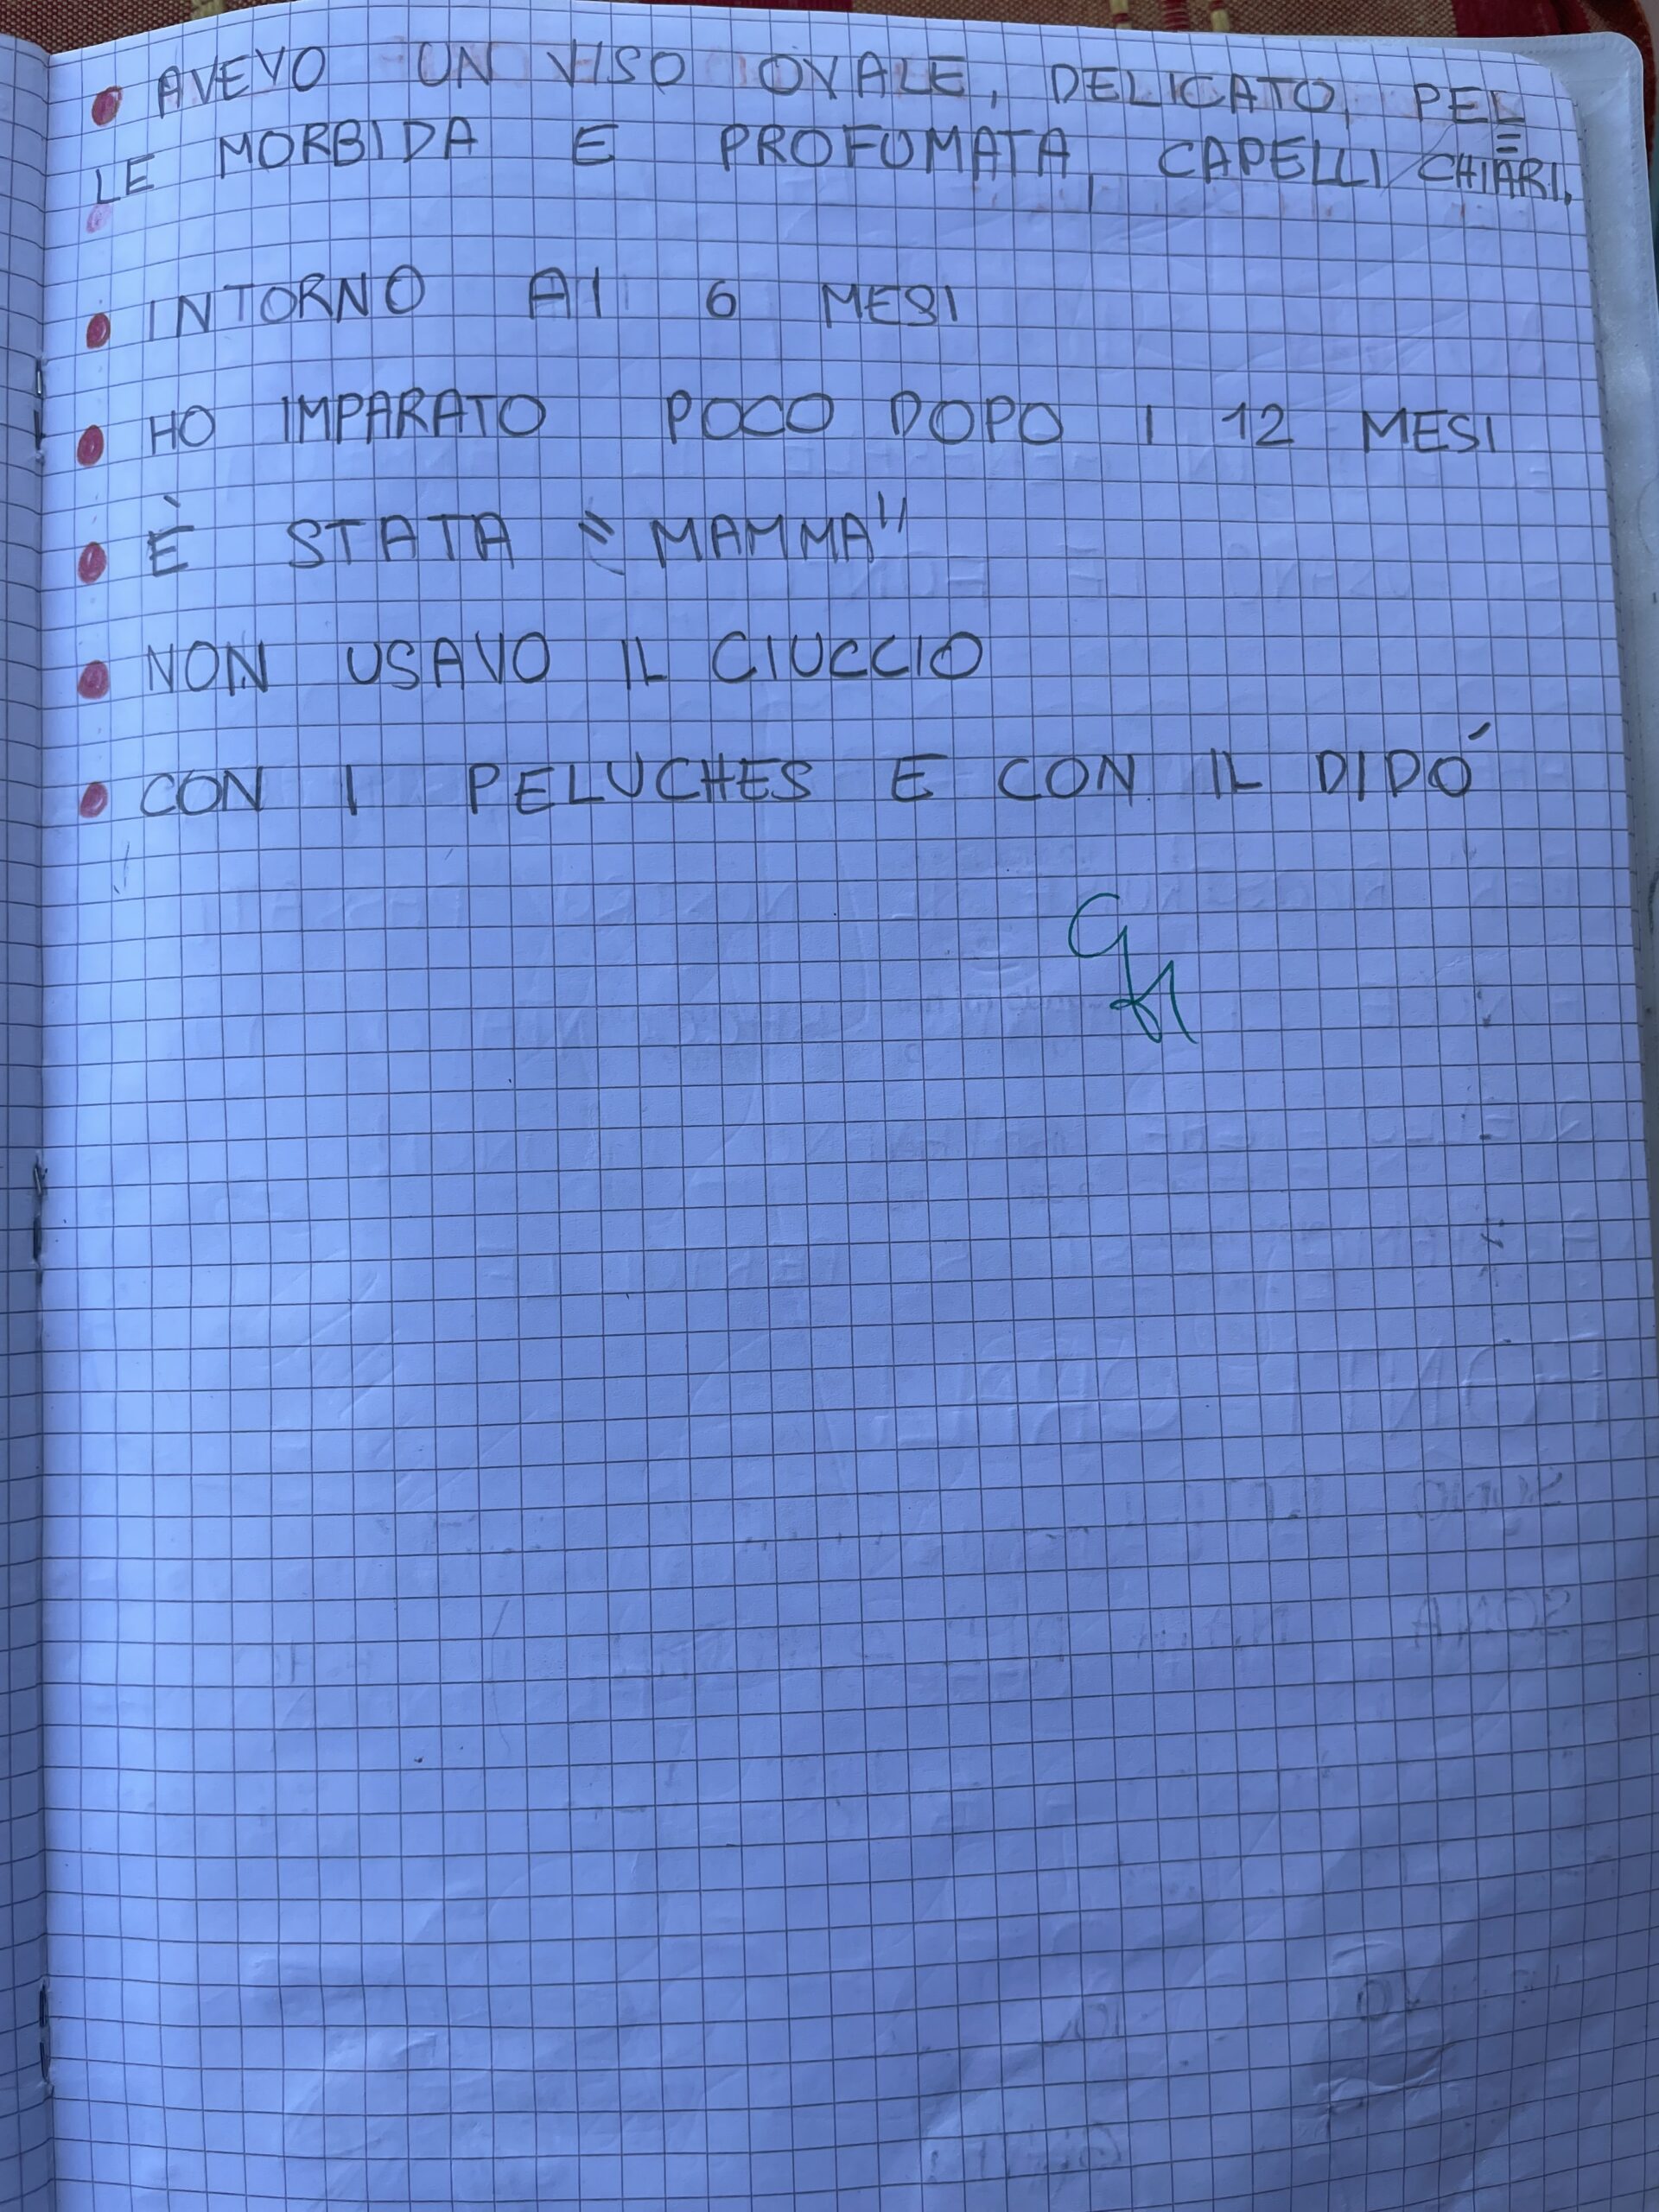 • AVEVO UN VISO OVALE, DELICATO, PEL=
LE MORBIDA E PROFUMATA, CAPELLI CHIARI.
• INTORNO AI 6 MESI
• HO IMPARATO POCO DOPO I 12 MESI
• È STATA "MAMMA"
• NON USAVO IL CIUCCIO
• CON I PELUCHES E CON IL DIDÓ